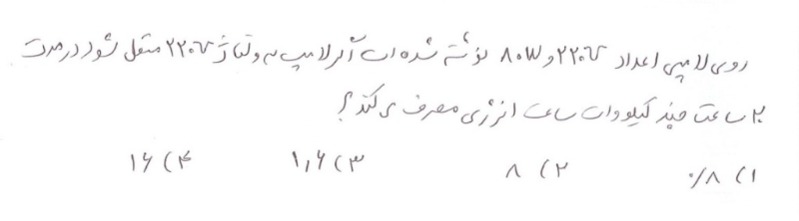 روی لامپی اعداد ۲۲۰V و ۸۰W نوشته شده است اگر لامپ به ولتاژ ۲۲۰V متصل شود در مدت
۲۰ ساعت چند کیلووات ساعت انرژی مصرف می کند؟
۱) ۰/۸ ۲) ۸ ۳) ۱,۶ ۴) ۱۶